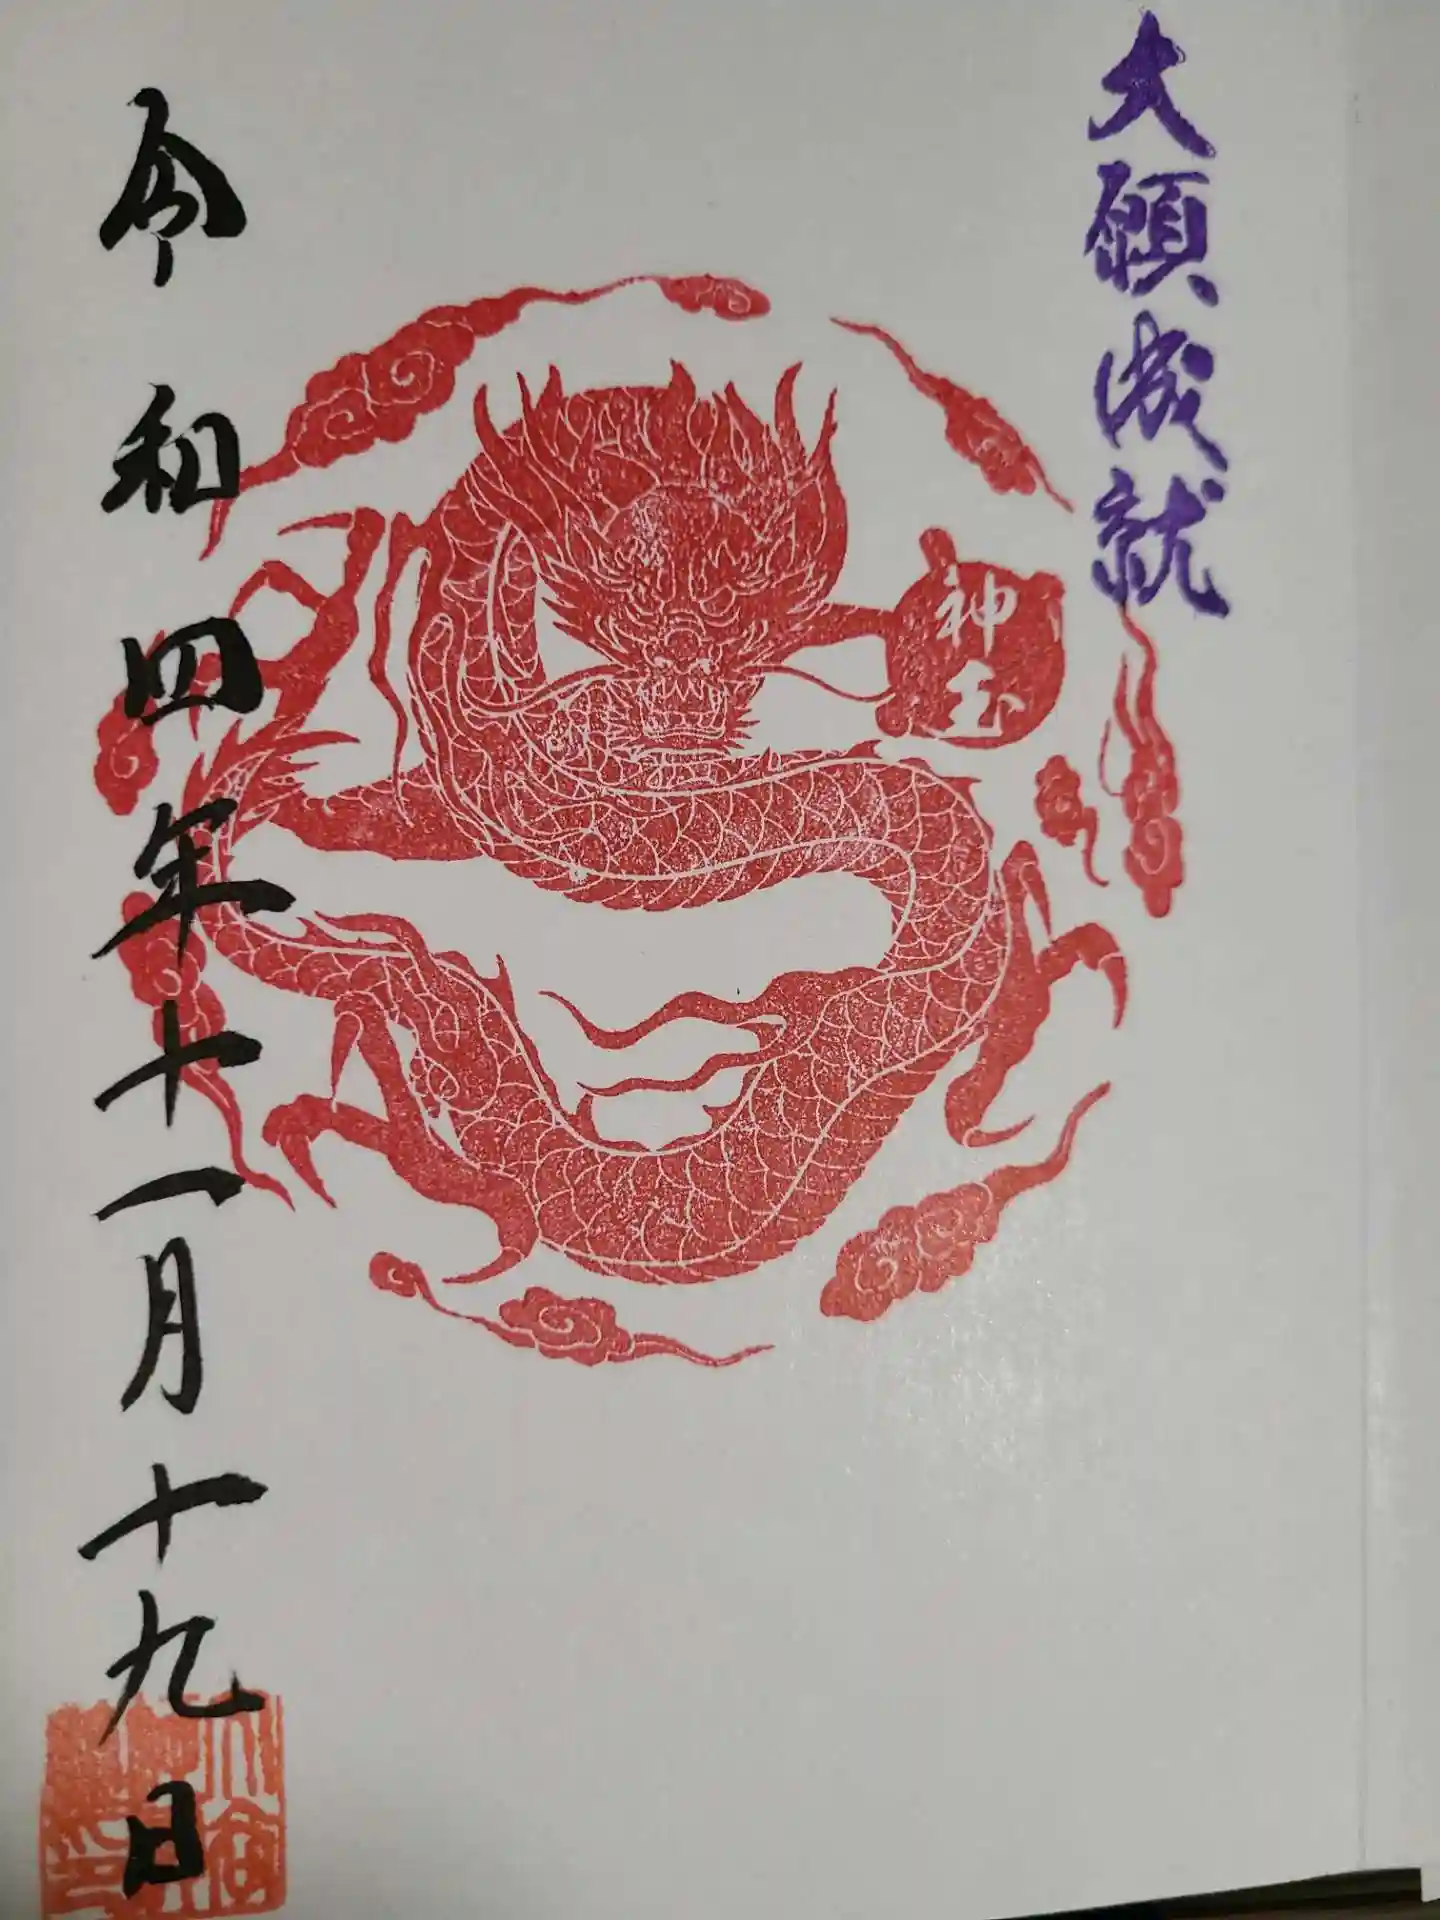 大願成就
神玉
令和四年十一月十九日